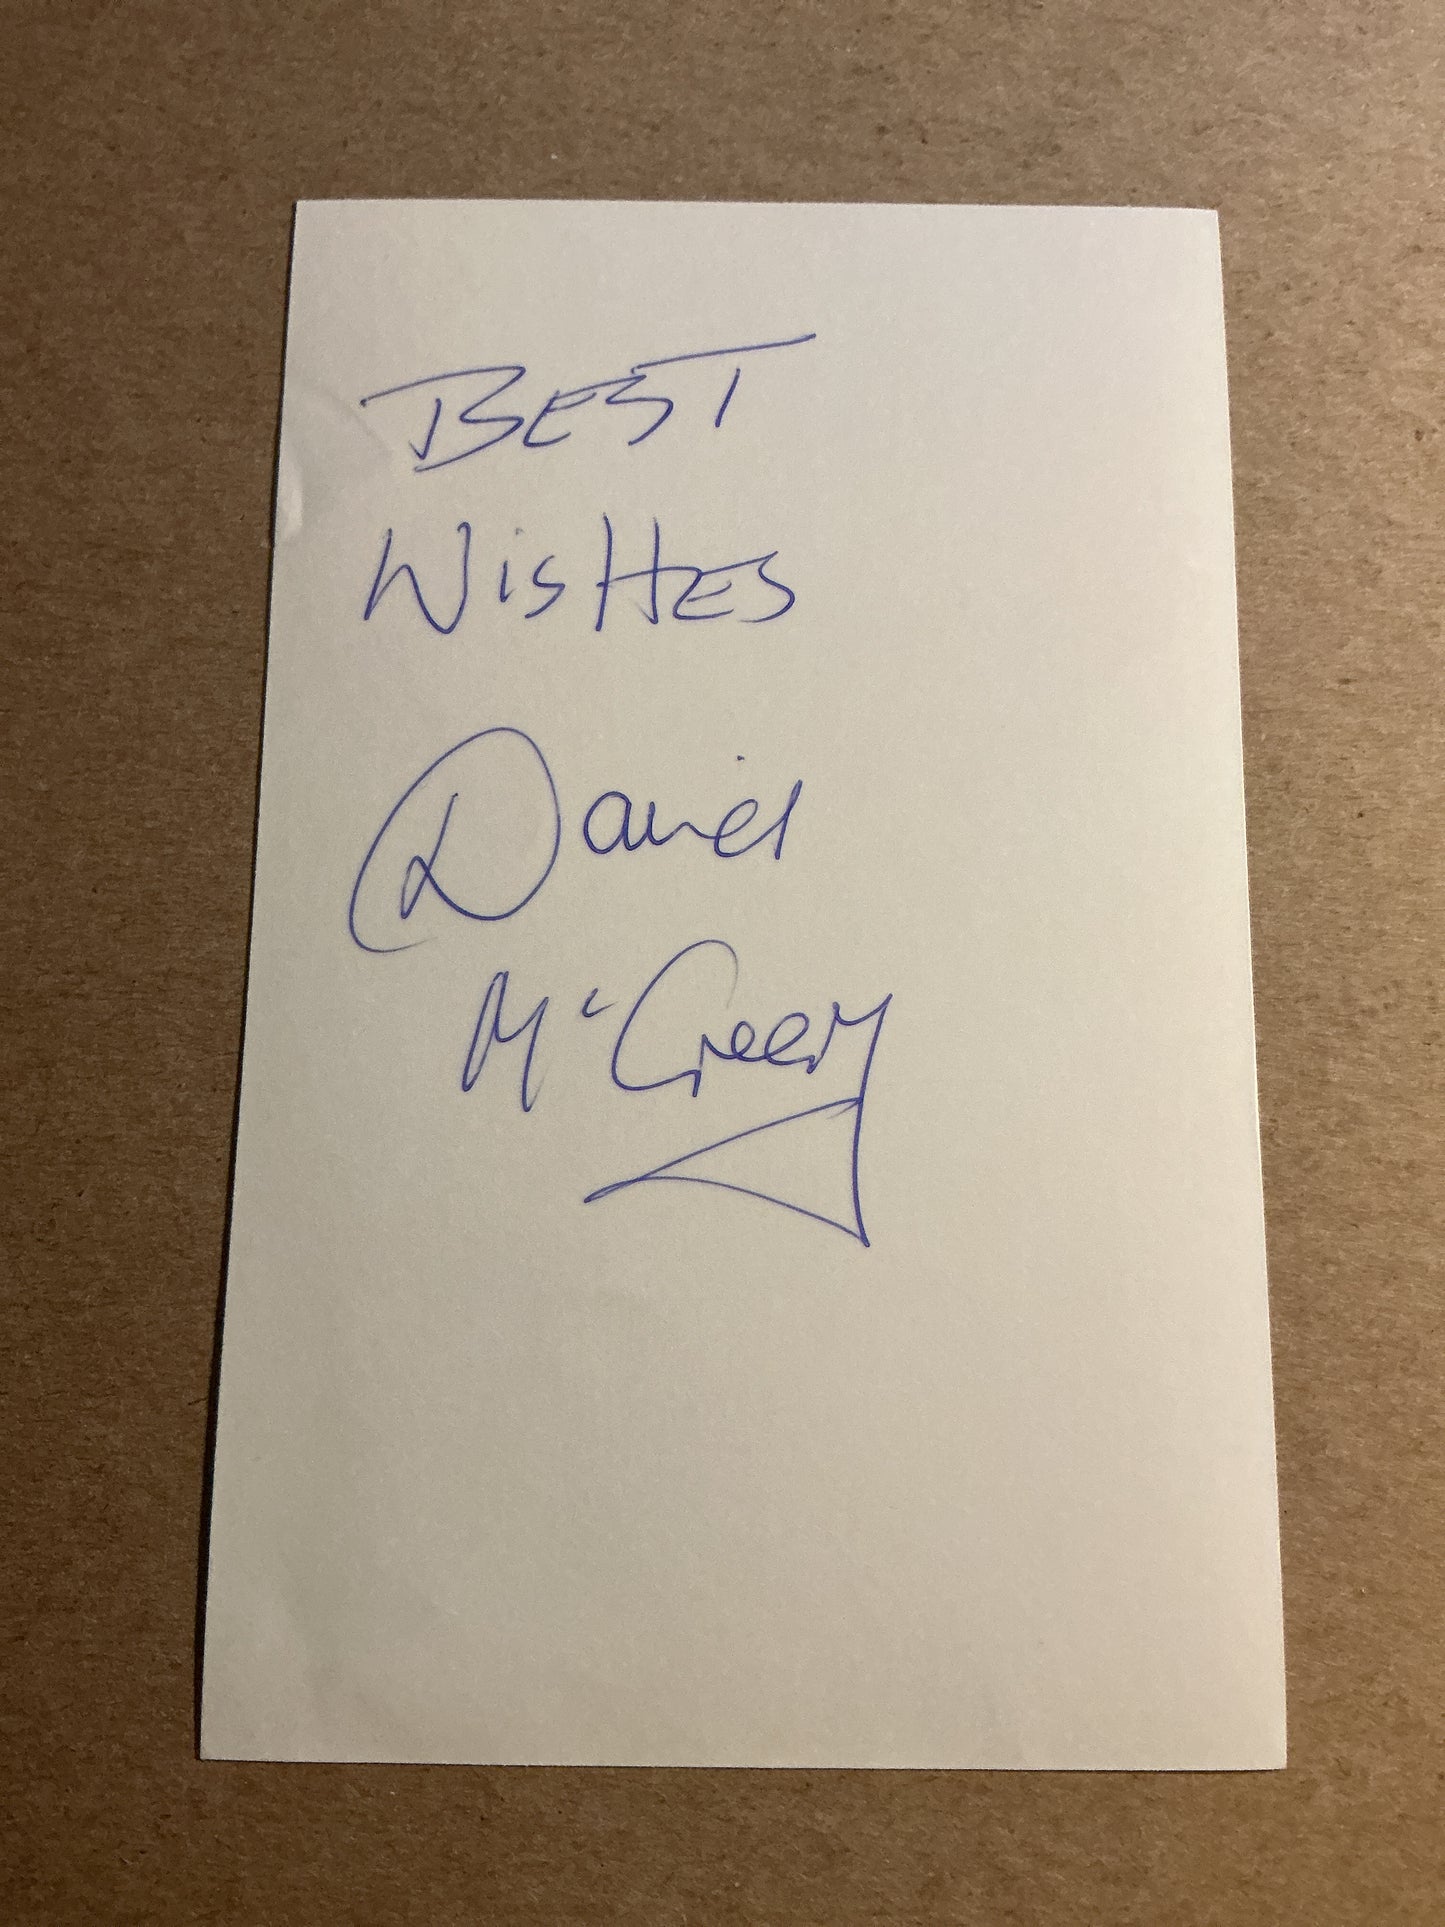 BEST
WisHES
David
McCreery